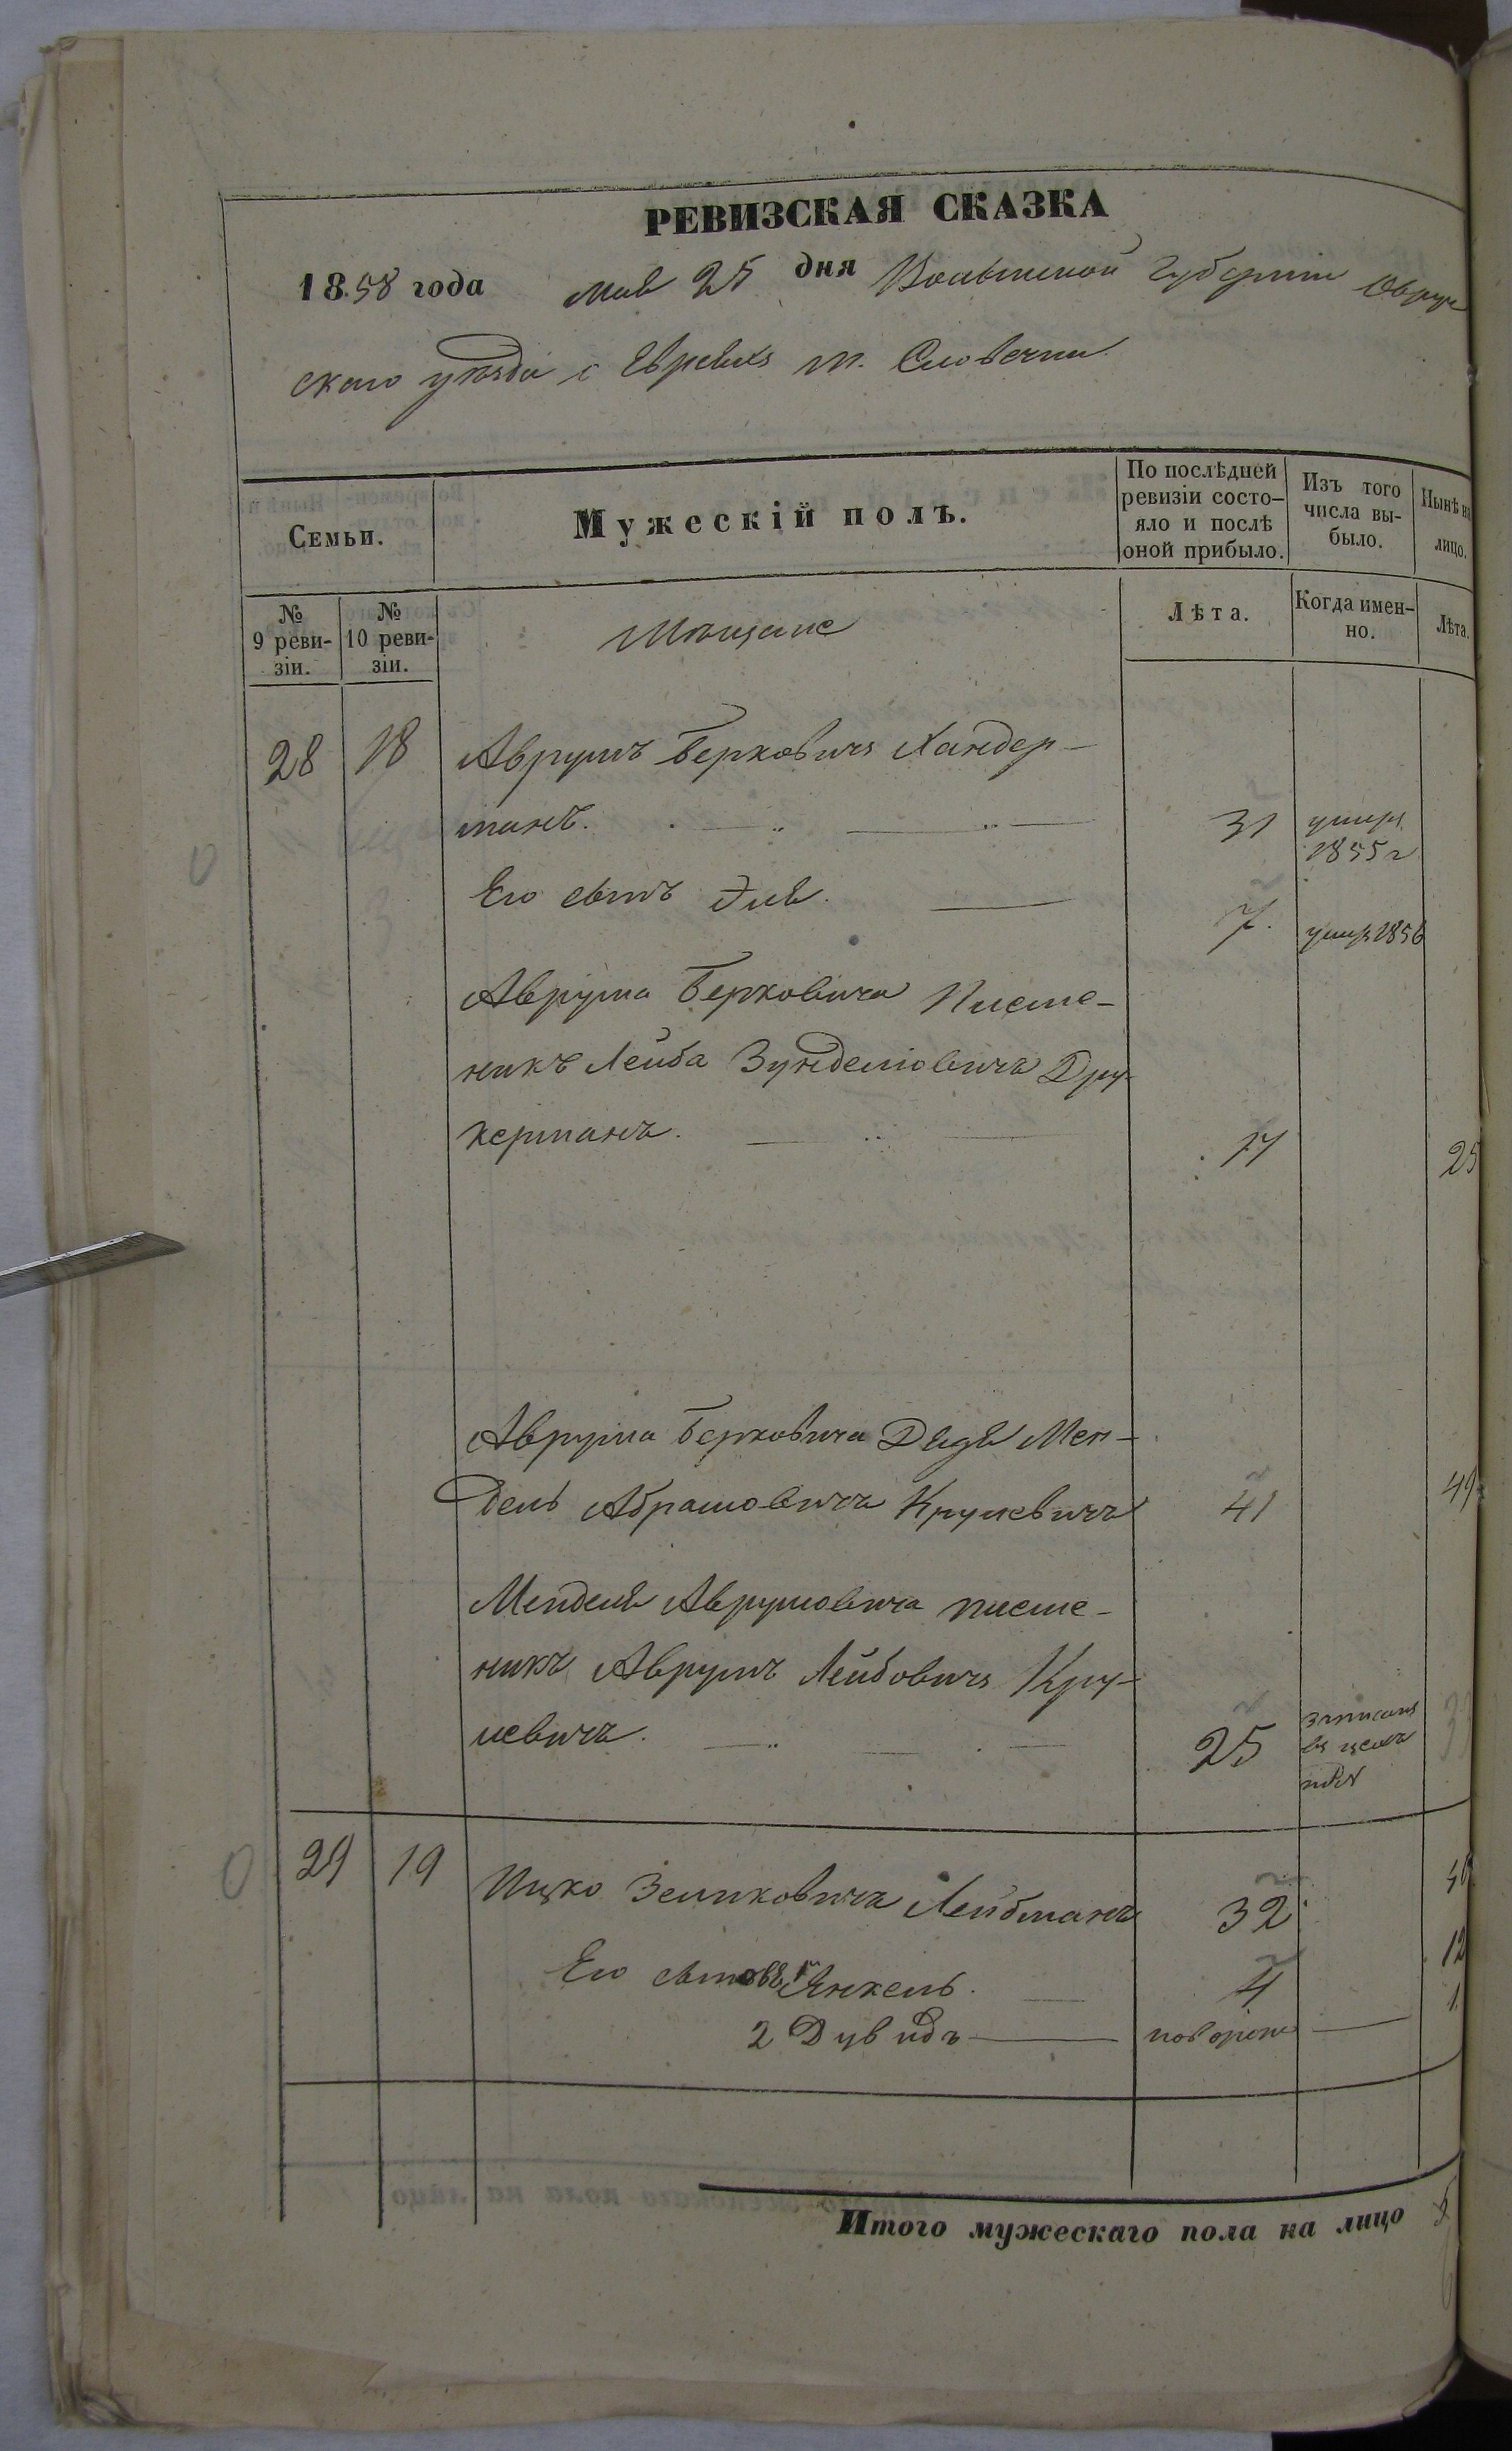 РЕВИЗСКАЯ СКАЗКА
1858 года мая 25 дня Волынской губерніи Овруч
скаго уѣзда о Евреяхъ м. Словечни.
Семьи.
Мужескій полъ.
По послѣдней ревизіи состо-
яло и послѣ оной прибыло.
Изъ того числа вы-
было.
Нынѣ на лицо.
№ 9 реви-
зіи.
№ 10 реви-
зіи.
Мѣщане
Лѣта.
Когда имен-
но.
Лѣта.
28 18 Аврумъ Берковичъ Хандер-
манъ. 31 умеръ 1855 г
Его сынъ Эля. 7. умеръ 1856
Аврума Берковича Племе-
никъ Лейба Зунделіовичъ Дру-
керманъ. 17 25
Аврума Берковича Дядя Мен-
дель Абрамовичъ Крулевичъ 41 49
Менделя Аврумовича племе-
никъ Аврумъ Лейбовичъ Кру-
левичъ. 25 записанъ въ
29 19 Ицко Зеликовичъ Лейбманъ 32 40
Его сыновья 1й Янкель. 4 12
2 Дувидъ новорож 1
Итого мужескаго пола на лицо 5